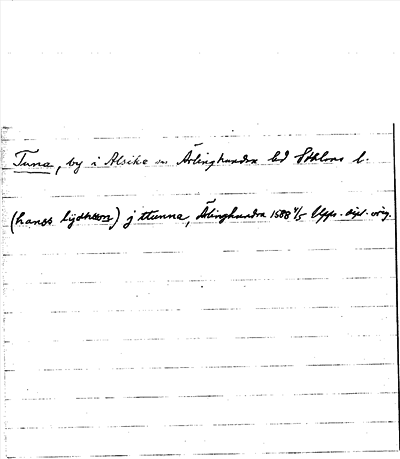 Tuna, by i Alsike sn Ärlinghundra hd Sthlms l.
(hanss) j ttunna, Ärlinghundra 1588 4/5 Upps. dipl. orig.